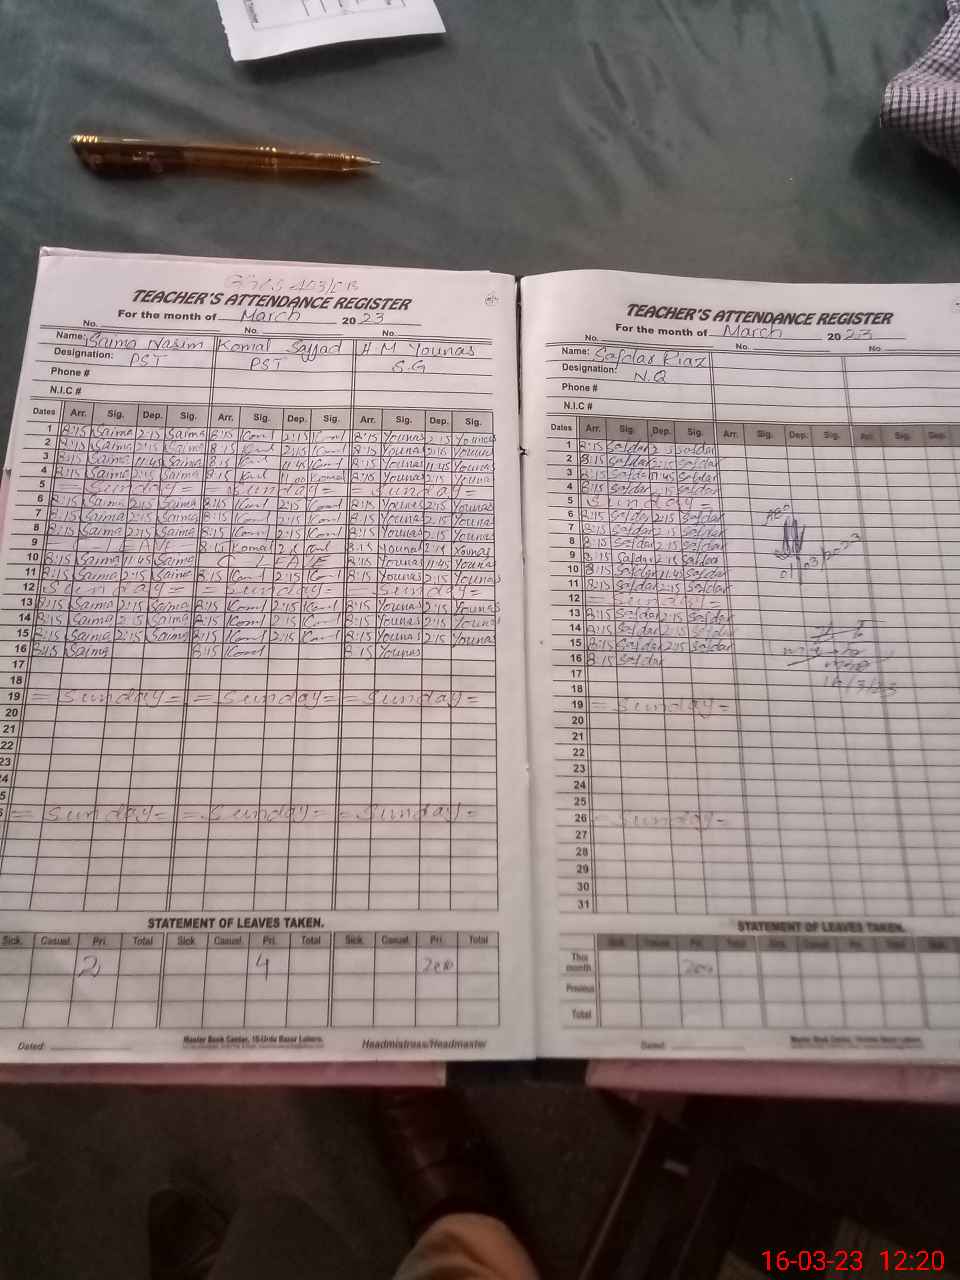 TEACHER'S ATTENDANCE REGISTER
For the month of March 2023
No. No. No.
Name: Saima Nasim Komal Sajjad H.M Younas
Designation: PST PST S.G
Phone #
N.I.C #
Dates Arr. Sig. Dep. Sig. Arr. Sig. Dep. Sig. Arr. Sig. Dep. Sig.
1 8:15 Saima 2:15 Saima 8:15 2:15 8:15 Younas 2:15 Younas
2 8:15 Saima 2:15 Saima 8:15 2:15 8:15 Younas 2:15 Younas
3 8:15 Saima 11:45 Saima 8:15 11:45 8:15 Younas 11:45 Younas
4 8:15 Saima 2:15 Saima 8:15 Komal 8:15 Younas 2:15 Younas
5 = Sunday = = Sunday = = Sunday =
6 8:15 Saima 2:15 Saima 8:15 2:15 8:15 Younas 2:15 Younas
7 8:15 Saima 2:15 Saima 8:15 2:15 8:15 Younas 2:15 Younas
8 8:15 Saima 2:15 Saima 8:15 2:15 8:15 Younas 2:15 Younas
9 8:15 Komal 2:15 8:15 Younas 2:15 Younas
10 8:15 Saima 11:45 Saima 8:15 Younas 11:45 Younas
11 8:15 Saima 2:15 Saima 8:15 2:15 8:15 Younas 2:15 Younas
12 = Sunday = = Sunday = = Sunday =
13 8:15 Saima 2:15 Saima 8:15 2:15 8:15 Younas 2:15 Younas
14 8:15 Saima 2:15 Saima 8:15 2:15 8:15 Younas 2:15 Younas
15 8:15 Saima 2:15 Saima 8:15 2:15 8:15 Younas 2:15 Younas
16 8:15 Saima 8:15 8:15 Younas
17
18
19 = Sunday = = Sunday = = Sunday =
20
21
22
23
= Sunday = = Sunday = = Sunday =
STATEMENT OF LEAVES TAKEN.
Sick. Casual. Pri. Total Sick. Casual. Pri. Total Sick. Casual. Pri. Total
2 4 Zero
Dated: Master Book Center, 15-Urdu Bazar Lahore. Headmistress/Headmaster
TEACHER'S ATTENDANCE REGISTER
For the month of March 2023
No. No. No.
Name: Safdar Riaz
Designation: N.Q
Phone #
N.I.C #
Dates Arr. Sig. Dep. Sig. Arr. Sig. Dep. Sig. Arr. Sig. Dep.
1 8:15 Safdar 2:15 Safdar
2 8:15 Safdar 2:15 Safdar
3 8:15 Safdar 11:45 Safdar
4 8:15 Safdar 2:15 Safdar
5 = Sunday =
6 8:15 Safdar 2:15 Safdar
7 8:15 Safdar 2:15 Safdar
8 8:15 Safdar 2:15 Safdar
9 8:15 Safdar 2:15 Safdar
10 8:15 Safdar 11:45 Safdar
11 8:15 Safdar 2:15 Safdar
12 = Sunday =
13 8:15 Safdar 2:15 Safdar
14 8:15 Safdar 2:15 Safdar
15 8:15 Safdar 2:15 Safdar
16 8:15 Safdar
17
18 16/3/23
19 = Sunday =
20
21
22
23
24
25
26 = Sunday =
27
28
29
30
31
STATEMENT OF LEAVES TAKEN.
Sick Casual Pri. Total Sick Casual Pri. Total Sick
This month Zero
Previous
Total
Dated:
16-03-23 12:20